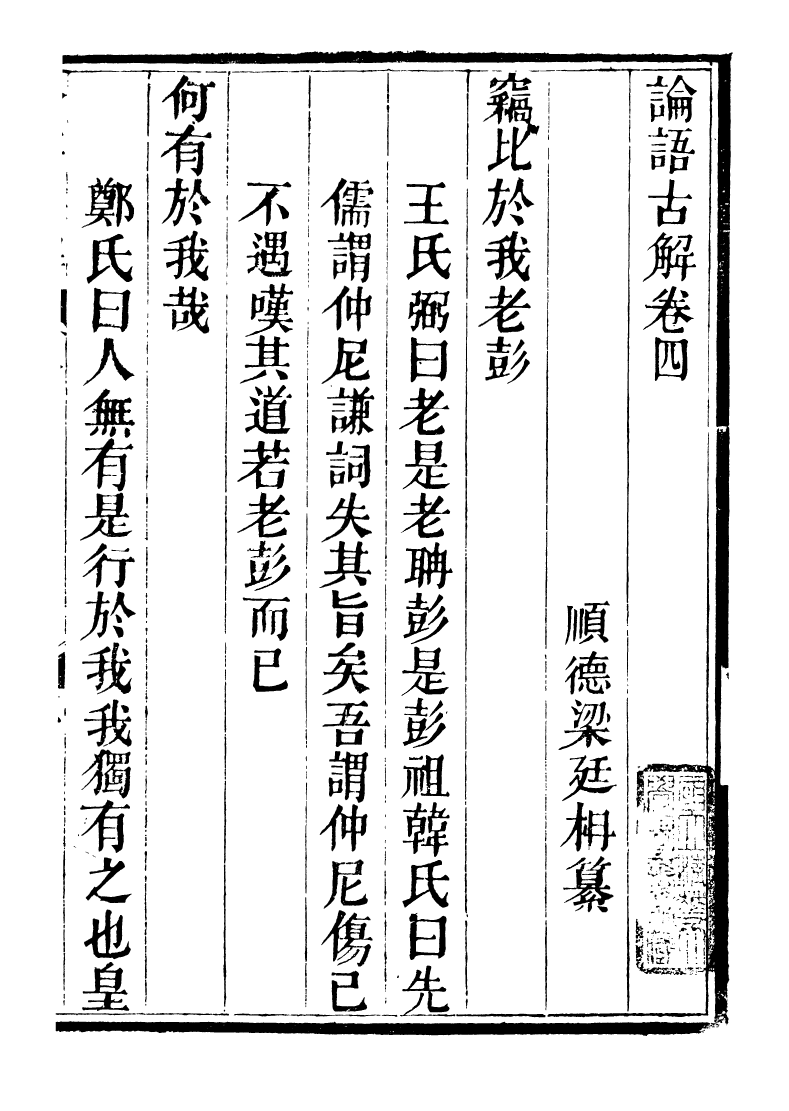 論語古解卷四
順德梁廷枏纂
竊比於我老彭
王氏弼曰老是老聃彭是彭祖韓氏曰先
儒謂仲尼謙詞失其旨矣吾謂仲尼傷己
不遇嘆其道若老彭而已
何有於我哉
鄭氏曰人無有是行於我我獨有之也皇